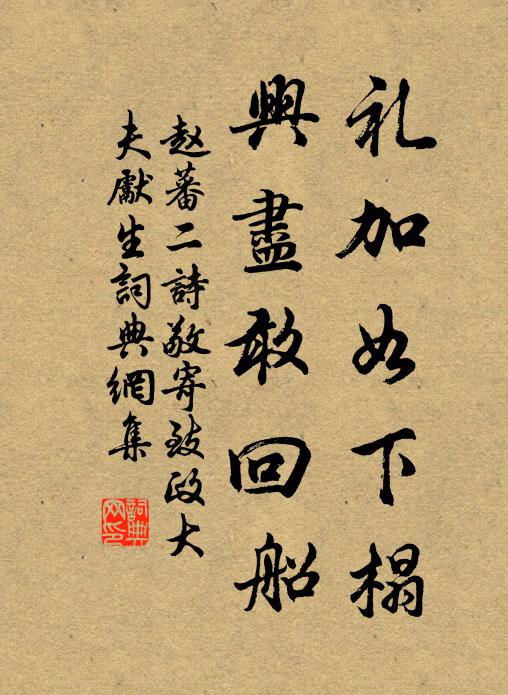 礼加如下榻
興盡敢回船
赵蕃二詩敬寄致政大
夫獻生詞典網集
詞典
网印